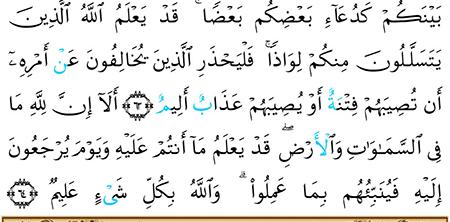 بَيْنَكُمْ كَدُعَآءِ بَعْضِكُم بَعْضًا ۚ قَدْ يَعْلَمُ ٱللَّهُ ٱلَّذِينَ
يَتَسَلَّلُونَ مِنكُمْ لِوَاذًا ۚ فَلْيَحْذَرِ ٱلَّذِينَ يُخَالِفُونَ عَنْ أَمْرِهِۦٓ
أَن تُصِيبَهُمْ فِتْنَةٌ أَوْ يُصِيبَهُمْ عَذَابٌ أَلِيمٌ ﴿٦٣﴾ أَلَآ إِنَّ لِلَّهِ مَا
فِى ٱلسَّمَـٰوَٰتِ وَٱلْأَرْضِ ۖ قَدْ يَعْلَمُ مَآ أَنتُمْ عَلَيْهِ وَيَوْمَ يُرْجَعُونَ
إِلَيْهِ فَيُنَبِّئُهُم بِمَا عَمِلُوا۟ ۗ وَٱللَّهُ بِكُلِّ شَىْءٍ عَلِيمٌۢ ﴿٦٤﴾